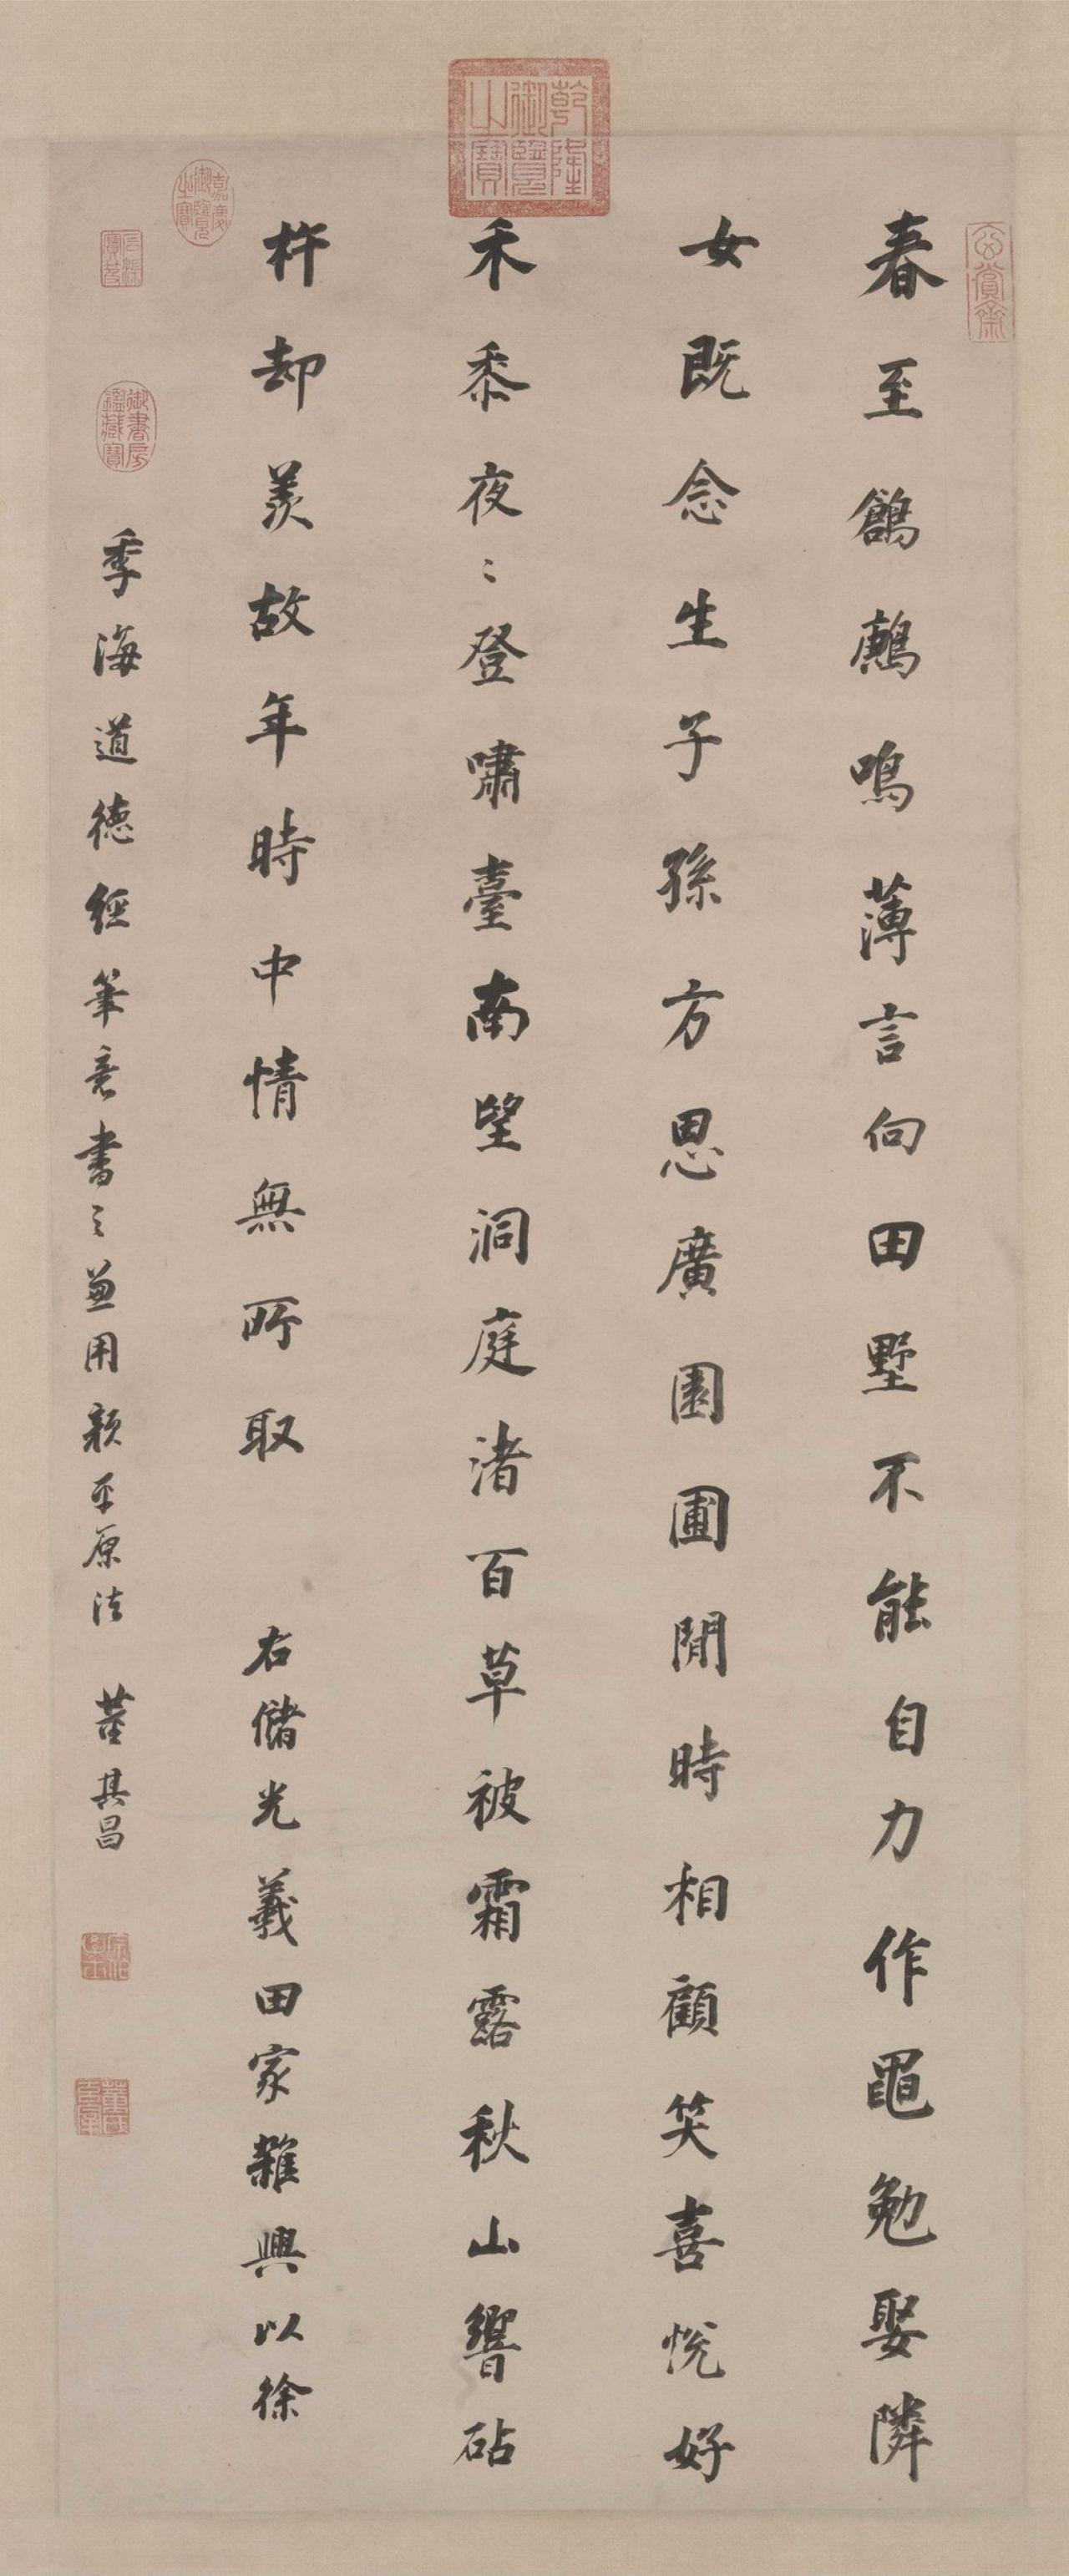 玄賞齋
春至鶬鶊鳴薄言向田墅不能自力作黽勉娶隣
女既念生子孫方思廣園圃閒時相顧笑喜悅好
乾隆御覽之寶
禾黍夜〻登嘯臺南望洞庭渚百草被霜露秋山響砧
杵却羨故年時中情無所取 右儲光羲田家雜興以徐
嘉慶御覽之寶
石渠寶笈
御書房鑑藏寶
季海道德經筆意書之兼用顏平原法 董其昌
宗伯學士
董氏玄宰